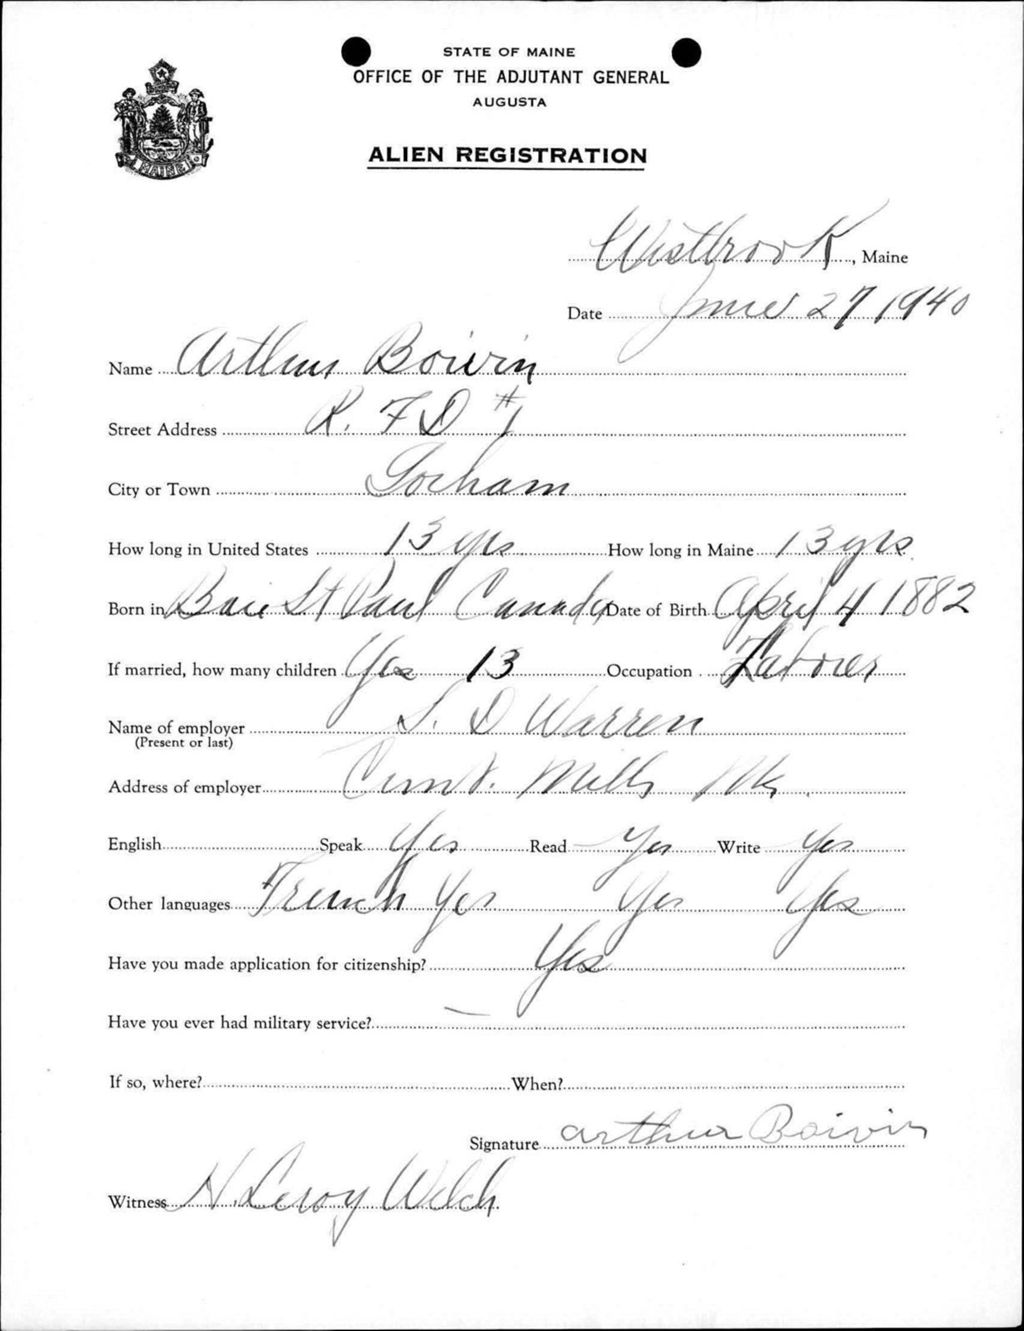 STATE OF MAINE
OFFICE OF THE ADJUTANT GENERAL
AUGUSTA
ALIEN REGISTRATION
MAINE
Westbrook, Maine
Date June 27 1940
Name Arthur Boivin
Street Address R. F D #1
City or Town Gorham
How long in United States 13 yrs How long in Maine 13 yrs
Born in Baie St Paul Canada Date of Birth April 4 1882
If married, how many children Yes 13 Occupation Laborer
Name of employer S. D Warren
(Present or last)
Address of employer Cumb. Mills Me.
English Speak Yes Read Yes Write Yes
Other languages French Yes Yes Yes
Have you made application for citizenship? Yes
Have you ever had military service? —
If so, where? When?
Signature arthur Boivin
Witness H. Leroy Welch